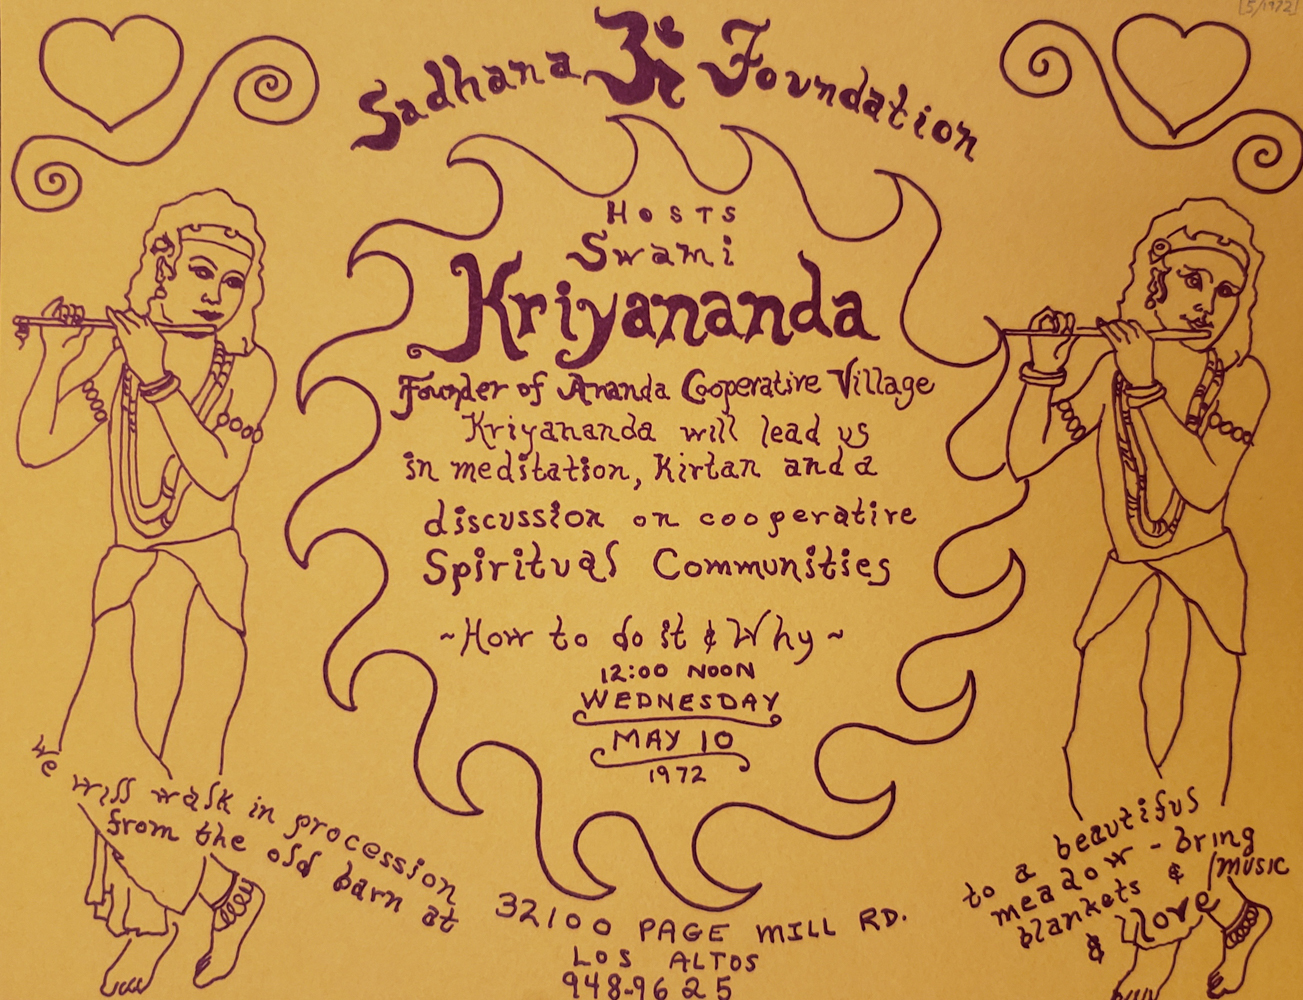 [5/1972]
Sadhana ॐ Foundation
HOSTS
Swami
Kriyananda
Founder of Ananda Cooperative Village
Kriyananda will lead us
in meditation, Kirtan and a
discussion on cooperative
Spiritual Communities
~How to do it & Why~
12:00 NOON
WEDNESDAY
MAY 10
1972
We will walk in procession
from the old barn at
32100 PAGE MILL RD.
LOS ALTOS
948-9625
to a beautiful
meadow - bring
blankets & music
& love